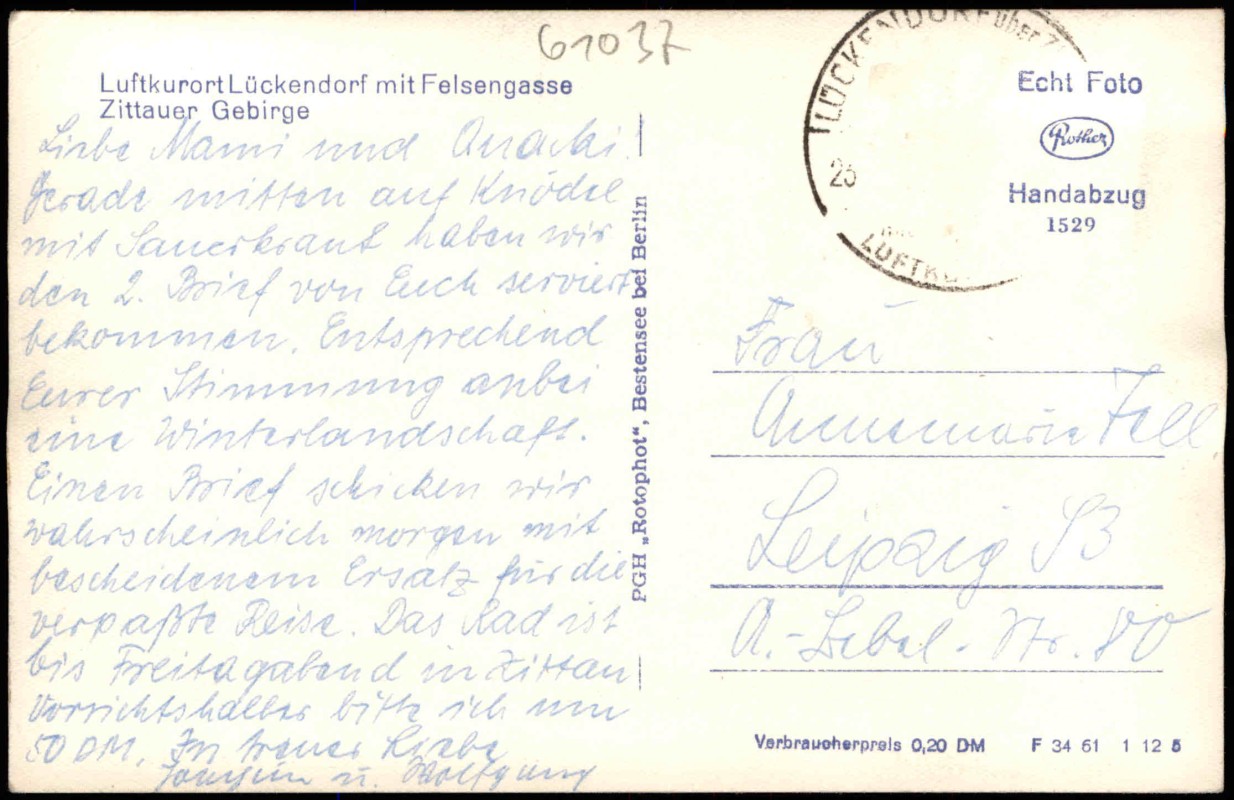 61037
Luftkurort Lückendorf mit Felsengasse
Zittauer Gebirge
Liebe Mami und
Gerade mitten auf Knödel
mit Sauerkraut haben wir
den 2. Brief von Euch serviert
bekommen. Entsprechend
Eurer Stimmung anbei
eine Winterlandschaft.
Einen Brief schicken wir
wahrscheinlich morgen mit
bescheidenem Ersatz für die
verpaßte Reise. Das Rad ist
bis Freitagabend in Zittau
Vorsichtshalber bitte ich um
50 DM. In treuer Liebe
u. Wolfgang
PGH „Rotophot“, Bestensee bei Berlin
LÜCKENDORF über
23
LUFTKU
Echt Foto
Rother
Handabzug
1529
Frau
Annemarie Fell
Leipzig S3
A.-Bebel-Str. 80
Verbraucherpreis 0,20 DM F 34 61 1 12 5